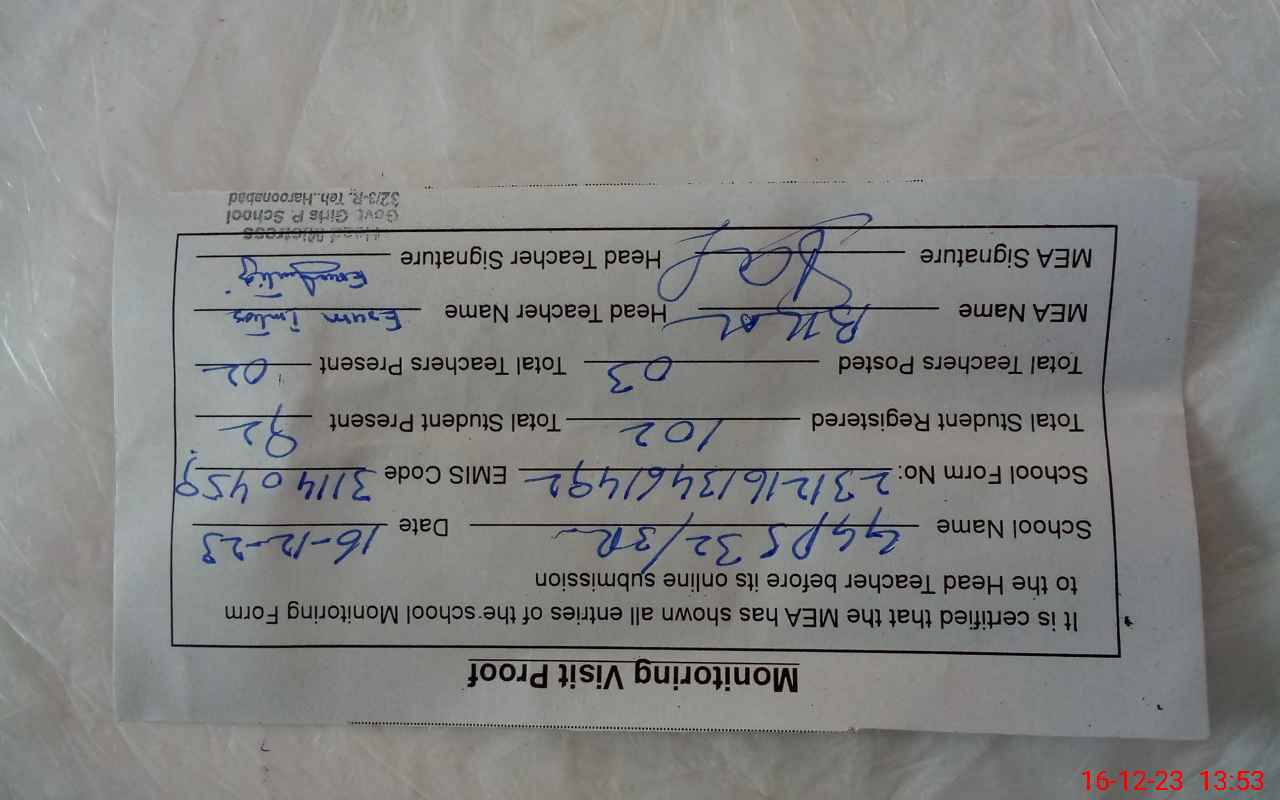 Monitoring Visit Proof
It is certified that the MEA has shown all entries of the school Monitoring Form
to the Head Teacher before its online submission
School Name GGPS 32/3R Date 16-12-23
School Form No: 231216134611492 EMIS Code 31140459
Total Student Registered 102 Total Student Present 92
Total Teachers Posted 03 Total Teachers Present 02
MEA Name Head Teacher Name Erum Imtiaz
MEA Signature Head Teacher Signature
Head Mistress
Govt. Girls P. School
32/3-R, Teh. Haroonabad
16-12-23 13:53